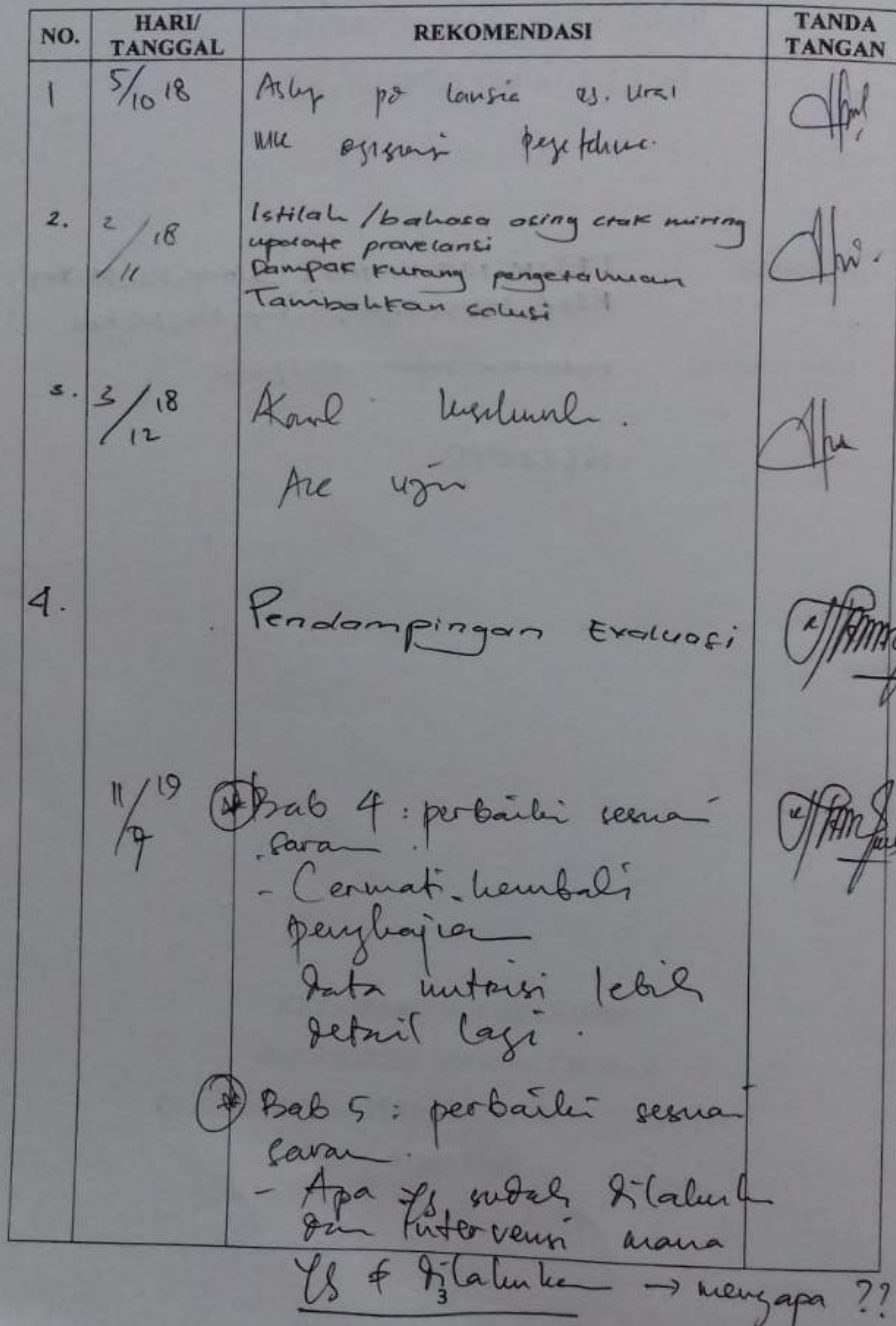 NO. HARI/ TANGGAL REKOMENDASI TANDA TANGAN
1 5/10 18 Askep pd lansia
2. 2/11 18 Istilah /bahasa asing ctak miring
update provelansi
Dampak kurang pengetahuan
Tambahkan solusi
3. 3/12 18
Acc ujin
4. Pendampingan Evaluasi
11/7 19 Bab 4 : perbaiki sesuai
saran.
- Cermati kembali
pengkajian
data nutrisi lebih
detail lagi.
Bab 5 : perbaiki sesuai
saran.
- Apa yg sudah dilakukan
dan intervensi mana
yg dilakukan → mengapa ??
3